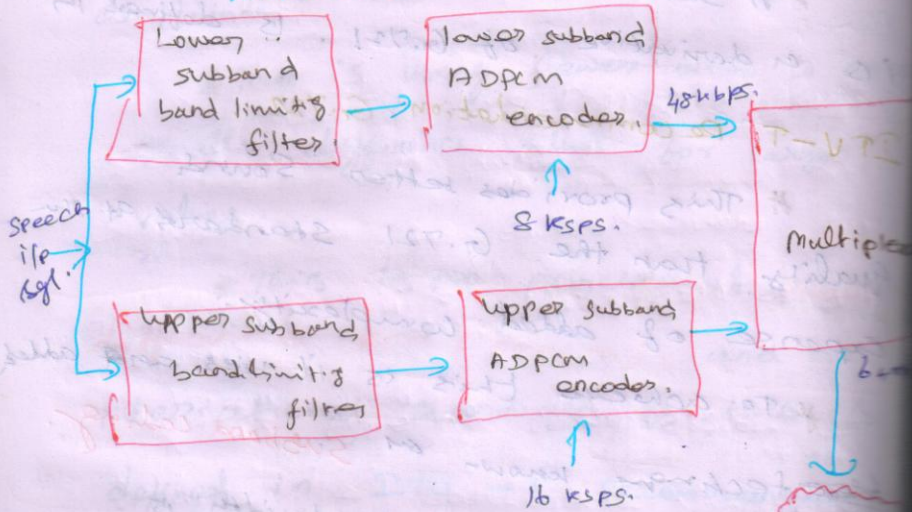 Lower
subband
band limiting
filter.
lower subband
ADPCM
encoder.
48kbps.
8 ksps.
speech
i/p
sgl.
Multiplex
Upper subband
bandlimiting
filter
Upper subband
ADPCM
encoder.
16 ksps.